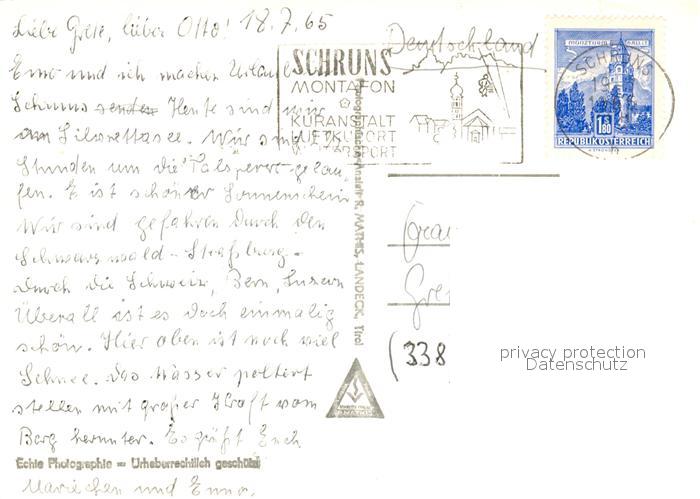 Liebe Grete, lieber Otto! 18.7.65
Enno und ich machen Urlaub
Schruns Heute sind wir
am Silvrettasee. Wir sind
Stunden um die Talsperre gelau
fen. Es ist schöner Sonnenschein
Wir sind gefahren durch den
Schwarzwald - Straßburg -
durch die Schweiz, Bern, Luzern
Überall ist es doch einmalig
schön. Hier oben ist noch viel
Schnee. Das Wasser poltert
stellen mit großer Kraft vom
Berg herunter. Es grüßt Euch
Echte Photographie - Urheberrechtlich geschützt
Mariechen und Enno.
Photographische Anstalt R. MATHIS, LANDECK, Tirol
SCHRUNS
MONTAFON
KURANSTALT
LUFTKURORT
SPORT
Deutschland
MÜNZTURM HALL I. T.
SCHRUNS
1.80
REPUBLIK ÖSTERREICH
Frau
Gre
(338
privacy protection
Datenschutz